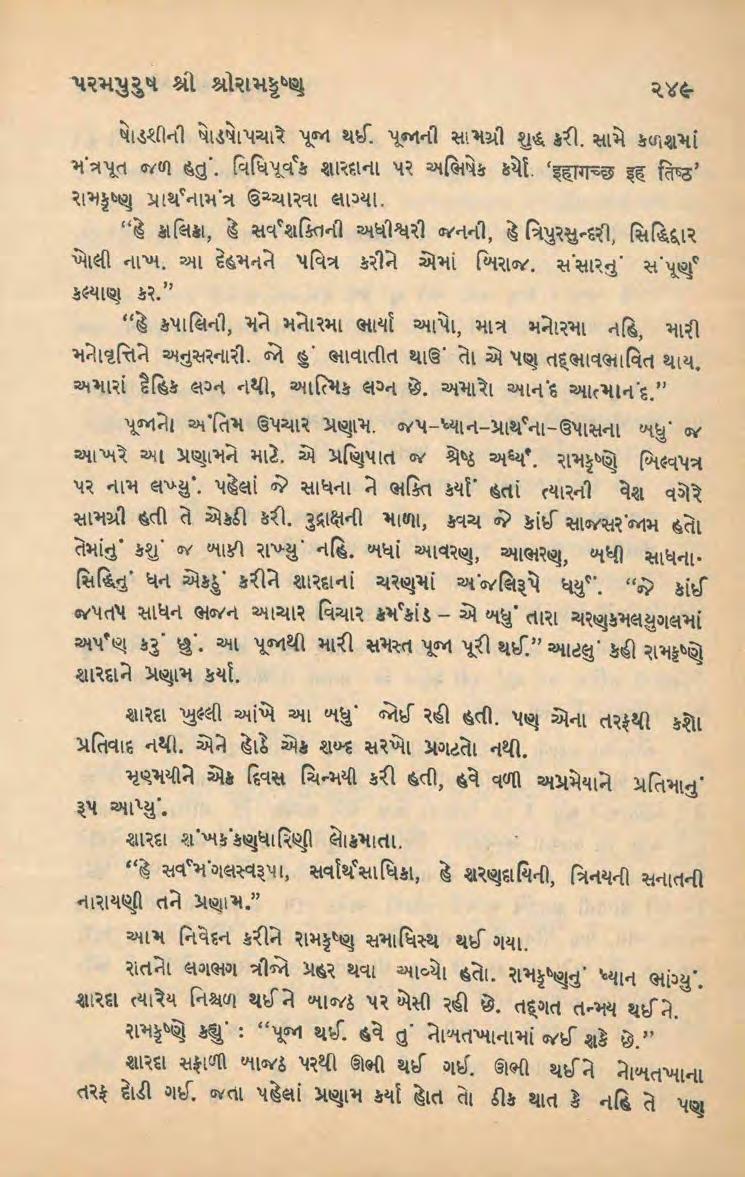 પરમપુરુષ શ્રી શ્રીરામકૃષ્ણ ૨૪૯
ષોડશીની ષોડષોપચારે પૂજા થઈ. પૂજાની સામગ્રી શુદ્ધ કરી. સામે કળશમાં
મંત્રપૂત જળ હતું. વિધિપૂર્વક શારદાના પર અભિષેક કર્યો. ‘इहागच्छ इह तिष्ठ’
રામકૃષ્ણ પ્રાર્થનામંત્ર ઉચ્ચારવા લાગ્યા.
“હે કાલિકા, હે સર્વશક્તિની અધીશ્વરી જનની, હે ત્રિપુરસુન્દરી, સિદ્ધિદ્વાર
ખોલી નાખ. આ દેહમનને પવિત્ર કરીને એમાં બિરાજ. સંસારનું સંપૂર્ણ
કલ્યાણ કર.”
“હે કપાલિની, મને મનોરમા ભાર્યા આપો, માત્ર મનોરમા નહિ, મારી
મનોવૃત્તિને અનુસરનારી. જો હું ભાવાતીત થાઉં તો એ પણ તદ્ભાવભાવિત થાય.
અમારાં દૈહિક લગ્ન નથી, આત્મિક લગ્ન છે. અમારો આનંદ આત્માનંદ.”
પૂજાનો અંતિમ ઉપચાર પ્રણામ. જપ–ધ્યાન–પ્રાર્થના–ઉપાસના બધું જ
આખરે આ પ્રણામને માટે. એ પ્રણિપાત જ શ્રેષ્ઠ અર્ઘ્ય. રામકૃષ્ણે બિલ્વપત્ર
પર નામ લખ્યું. પહેલાં જે સાધના ને ભક્તિ કર્યાં હતાં ત્યારની વેશ વગેરે
સામગ્રી હતી તે એકઠી કરી. રુદ્રાક્ષની માળા, કવચ જે કાંઈ સાજસરંજામ હતો
તેમાંનું કશું જ બાકી રાખ્યું નહિ. બધાં આવરણ, આભરણ, બધી સાધના-
સિદ્ધિનું ધન એકઠું કરીને શારદાનાં ચરણમાં અંજલિરૂપે ધર્યું. “જે કાંઈ
જપતપ સાધન ભજન આચાર વિચાર કર્મકાંડ – એ બધું તારા ચરણકમલયુગલમાં
અર્પણ કરું છું. આ પૂજાથી મારી સમસ્ત પૂજા પૂરી થઈ.” આટલું કહી રામકૃષ્ણે
શારદાને પ્રણામ કર્યા.
શારદા ખુલ્લી આંખે આ બધું જોઈ રહી હતી. પણ એના તરફથી કશો
પ્રતિવાદ નથી. એને હોઠે એક શબ્દ સરખો પ્રગટતો નથી.
મૃણ્મયીને એક દિવસ ચિન્મયી કરી હતી, હવે વળી અપ્રમેયાને પ્રતિમાનું
રૂપ આપ્યું.
શારદા શંખકંકણધારિણી લોકમાતા.
“હે સર્વમંગલસ્વરૂપા, સર્વાર્થસાધિકા, હે શરણદાયિની, ત્રિનયની સનાતની
નારાયણી તને પ્રણામ.”
આમ નિવેદન કરીને રામકૃષ્ણ સમાધિસ્થ થઈ ગયા.
રાતનો લગભગ ત્રીજો પ્રહર થવા આવ્યો હતો. રામકૃષ્ણનું ધ્યાન ભાંગ્યું.
શારદા ત્યારેય નિશ્ચળ થઈને બાજઠ પર બેસી રહી છે. તદ્ગત તન્મય થઈને.
રામકૃષ્ણે કહ્યું : “પૂજા થઈ. હવે તું નોબતખાનામાં જઈ શકે છે.”
શારદા સફાળી બાજઠ પરથી ઊભી થઈ ગઈ. ઊભી થઈને નોબતખાના
તરફ દોડી ગઈ. જતા પહેલાં પ્રણામ કર્યા હોત તો ઠીક થાત કે નહિ તે પણ